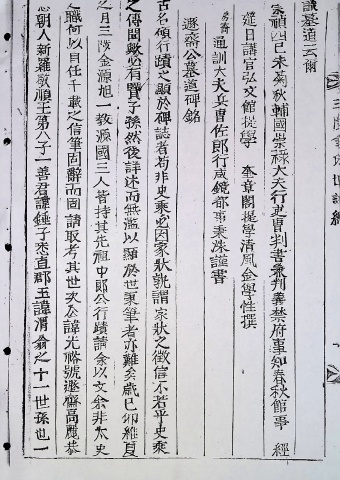 墓道云爾
崇禎四己未菊秋輔國崇祿大夫行吏曹判書兼判義禁府事知春秋館事 經
筵日講官弘文館提學 奎章閣提學清風金學性撰
通訓大夫兵曹佐郎行咸鏡都事秉洙謹書
遯齋公墓道碑銘
古名碩行蹟之顯於碑誌者苟非史乘必因家狀孰謂家狀之徵信不若乎史乘
之傳聞歟必有賢子孫然後詳述而無濫以顯於世秉筆者亦難矣歲己卯維夏
之月三陵金源旭一敎源國三人嘗持其先祖中郎公行蹟請余以文余非太史
之職何以自任千載之信筆固辭而固請取考其世次公諱光裕號遯齋高麗恭
愍朝人新羅敬順王第八子一善君諱錘子悉直郡王諱渭翁之十一世孫也一